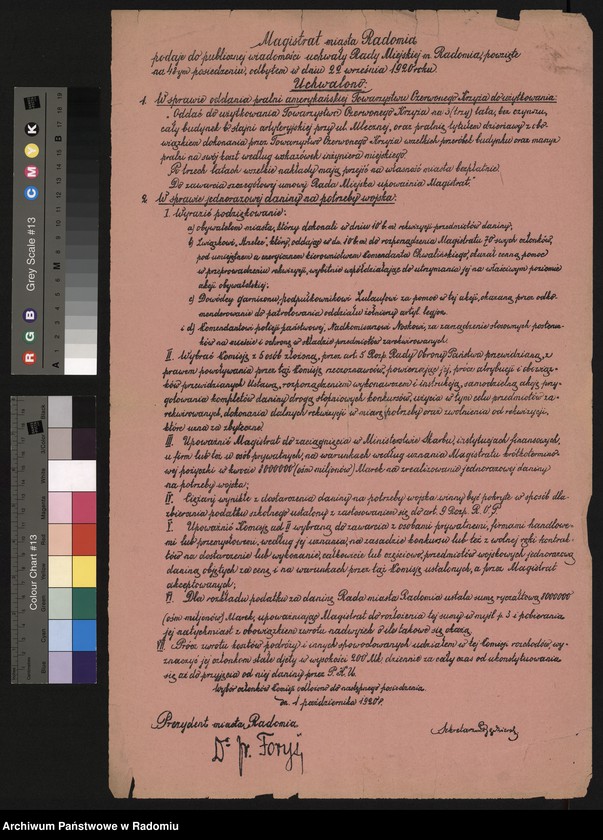 Magistrat miasta Radomia
podaje do publicznej wiadomości uchwały Rady Miejskiej m. Radomia, powzięte
na 48ym posiedzeniu, odbytem w dniu 22 września 1920 roku.
Uchwalono:
1. W sprawie oddania pralni amerykańskiej Towarzystwu Czerwonego Krzyża do użytkowania:
"Oddać do użytkowania Towarzystwu Czerwonego Krzyża na 3 (trzy) lata, bez czynszu,
cały budynek b. stajni artyleryjskiej przy ul. Mlecznej, oraz pralnię tytułem dzierżawy z obo-
wiązkiem dokonania przez Towarzystwo Czerwonego Krzyża wszelkich przeróbek budynku oraz maszyn
pralni na swój koszt według wskazówek inżyniera miejskiego.
Po trzech latach wszelkie nakłady mają przejść na własność miasta bezpłatnie.
Do zawarcia szczegółowej umowy Rada Miejska upoważnia Magistrat."
2. W sprawie jednorazowej daniny na potrzeby wojska:
I. Wyrazić podziękowanie:
a) obywatelom miasta, którzy dokonali w dniu 10 b.m. rekwizycji przedmiotów daniny;
b) Związkowi "Strzelec", który, oddając w dn. 10 b.m. do rozporządzenia Magistratu 70 swych członków,
pod umiejętnem a energicznem kierownictwem Komendanta Chwalińskiego, okazał cenną pomoc
w przeprowadzeniu rekwizycji, wybitnie współdziałając do utrzymania jej na właściwym poziomie
akcji obywatelskiej;
c) Dowódcy garnizonu, podpułkownikowi Zulaufowi za pomoc w tej akcji, okazaną przez odko-
menderowanie do patrolowania oddziału żołnierzy artyl. legjon.
i d) Komendantowi policji państwowej, Nadkomisarzowi Noskowi, za zarządzenie stosownych posterun-
ków na mieście i ochronę w składzie przedmiotów zarekwirowanych.
II. Wybrać Komisję z 5 osób złożoną, przez art. 5 Rozp. Rady Obrony Państwa przewidzianą, z
prawem powoływania przez tę Komisję rzeczoznawców, powierzając jej, prócz atrybucji i obowiąz-
ków przewidzianych Ustawą, rozporządzeniem wykonawczem i instrukcją, samodzielną akcję przy-
gotowania kompletów daniny drogą stopniowych konkursów, użycia w tym celu przedmiotów za-
rekwirowanych, dokonania dalszych rekwizycji w miarę potrzeby oraz zwolnienia od rekwizycji,
które uzna za zbyteczne.
III. Upoważnić Magistrat do zaciągnięcia w Ministerstwie Skarbu, instytucjach finansowych,
u firm lub też u osób prywatnych, na warunkach według uznania Magistratu krótkotermino-
wej pożyczki w kwocie 8000000 (ośm miljonów) Marek na zrealizowanie jednorazowej daniny
na potrzeby wojska;
IV. Ciężary wynikłe z dostarczenia daniny na potrzeby wojska winny być pokryte w sposób dla
zbierania podatku szkolnego ustalony z zastosowaniem się do art. 9 Rozp. R.O.P.
V. Upoważnić Komisję ad II wybraną do zawarcia z osobami prywatnemi, firmami handlowe-
mi lub przemysłowemi, według jej uznania, na zasadzie konkursu lub też z wolnej ręki kontrak-
tów na dostarczenie lub wykonanie, całkowicie lub częściowo, przedmiotów wojskowych, jednorazową
daniną objętych za cenę i na warunkach przez tę Komisję ustalonych, a przez Magistrat
akceptowanych;
VI. Dla rozkładu podatku za daninę Rada miasta Radomia ustala sumę ryczałtową 8000000
(ośm miljonów) Marek, upoważniając Magistrat do rozłożenia tej sumy w myśl p. 3 i pobierania
jej natychmiast z obowiązkiem zwrotu nadwyżek o ile takowe się okażą,
VII. Prócz zwrotu kosztów podróży i innych spowodowanych udziałem w tej Komisji rozchodów, wy-
znaczyć jej członkom stałe djety w wysokości 200 Mk. dziennie za cały czas od ukonstytuowania
się aż do przyjęcia od niej daniny przez P.K.U.
Wybór członków Komisji odłożono do następnego posiedzenia.
dn. 1 października 1920 r.
Prezydent miasta Radomia
Sekretarz
Dr
Archiwum Państwowe w Radomiu
Grey Scale #13
Colour Chart #13
R G B C M Y K
A M B
Black
3/Color
White
Magenta
Red
Yellow
Green
Cyan
Blue